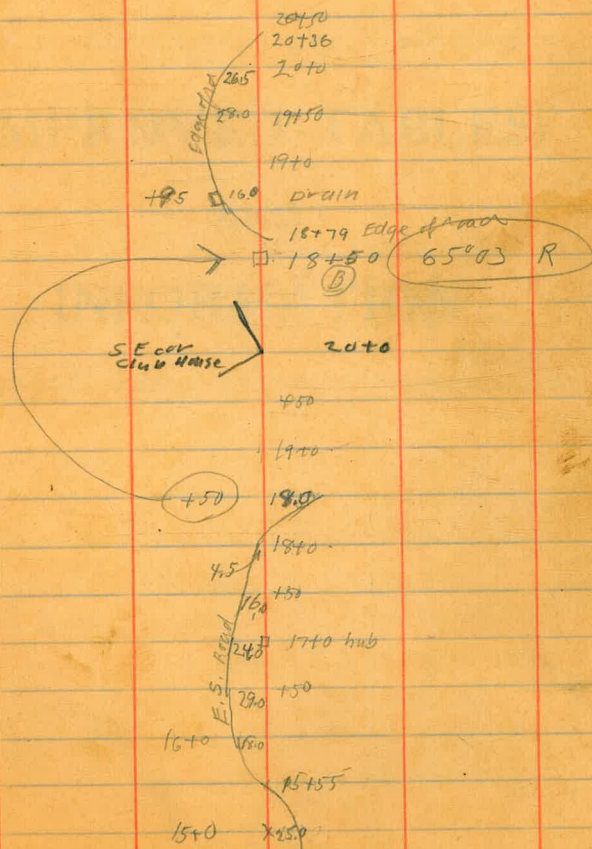 20+50
20+36
26.5 20+0
28.0 19+50
Edge of rd
19+0
+95 16.0 Drain
18+79 Edge of road
18+50 65°03 R
B
S E cor 20+0
Club House
+50
19+0
+50 18.0
18+0
4.5
16.0 +50
24.0 17+0 hub
E.S. Road
29.0 +50
16+0 18.0
15+55
15+0 25.0